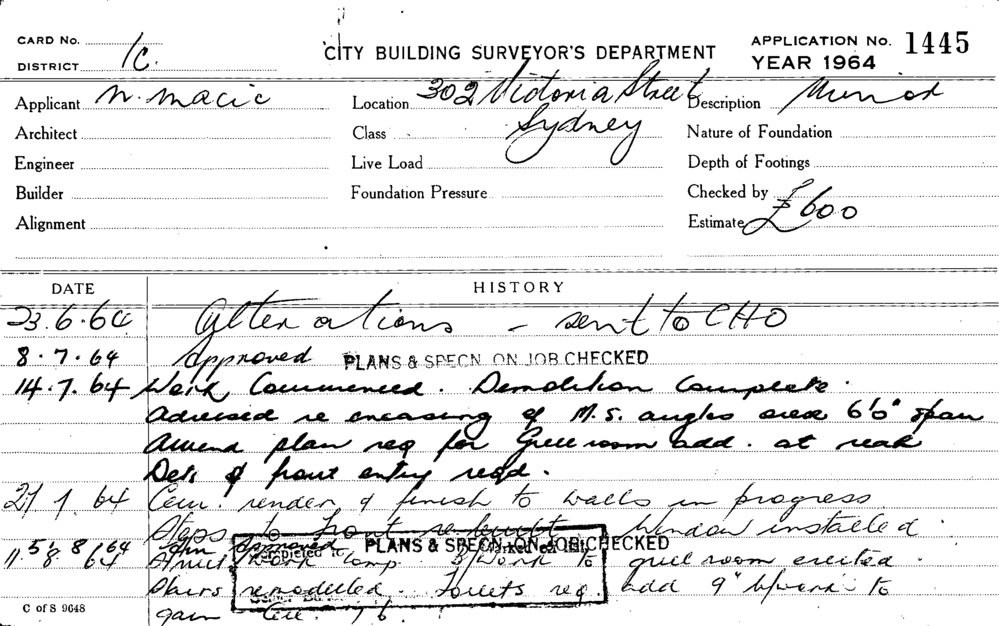 CARD No.
DISTRICT 1C.
CITY BUILDING SURVEYOR'S DEPARTMENT
APPLICATION No. 1445
YEAR 1964
Applicant N. Macic
Location 302 Victoria Street
Sydney
Description
Architect
Class
Nature of Foundation
Engineer
Live Load
Depth of Footings
Builder
Foundation Pressure
Checked by
Alignment
Estimate £600
DATE
HISTORY
23.6.64 Alterations - sent to CHO
8.7.64 Approved PLANS & SPECN. ON JOB CHECKED
14.7.64 Work Commenced. Demolition Complete.
Advised re encasing of M.S. angles over 6'0" span
Amend plan req for Grill room add. at rear
Dets of front entry reqd.
27 7 64 Cem. render & finish to walls in progress
Steps to front rebuilt Window installed.
5 8 64 PLANS & SPECN. ON JOB CHECKED
11.8.64 Struct work comp B/work to grill room erected.
Stairs remodelled. Toilets req. add 9" b/work to
C of S 9648